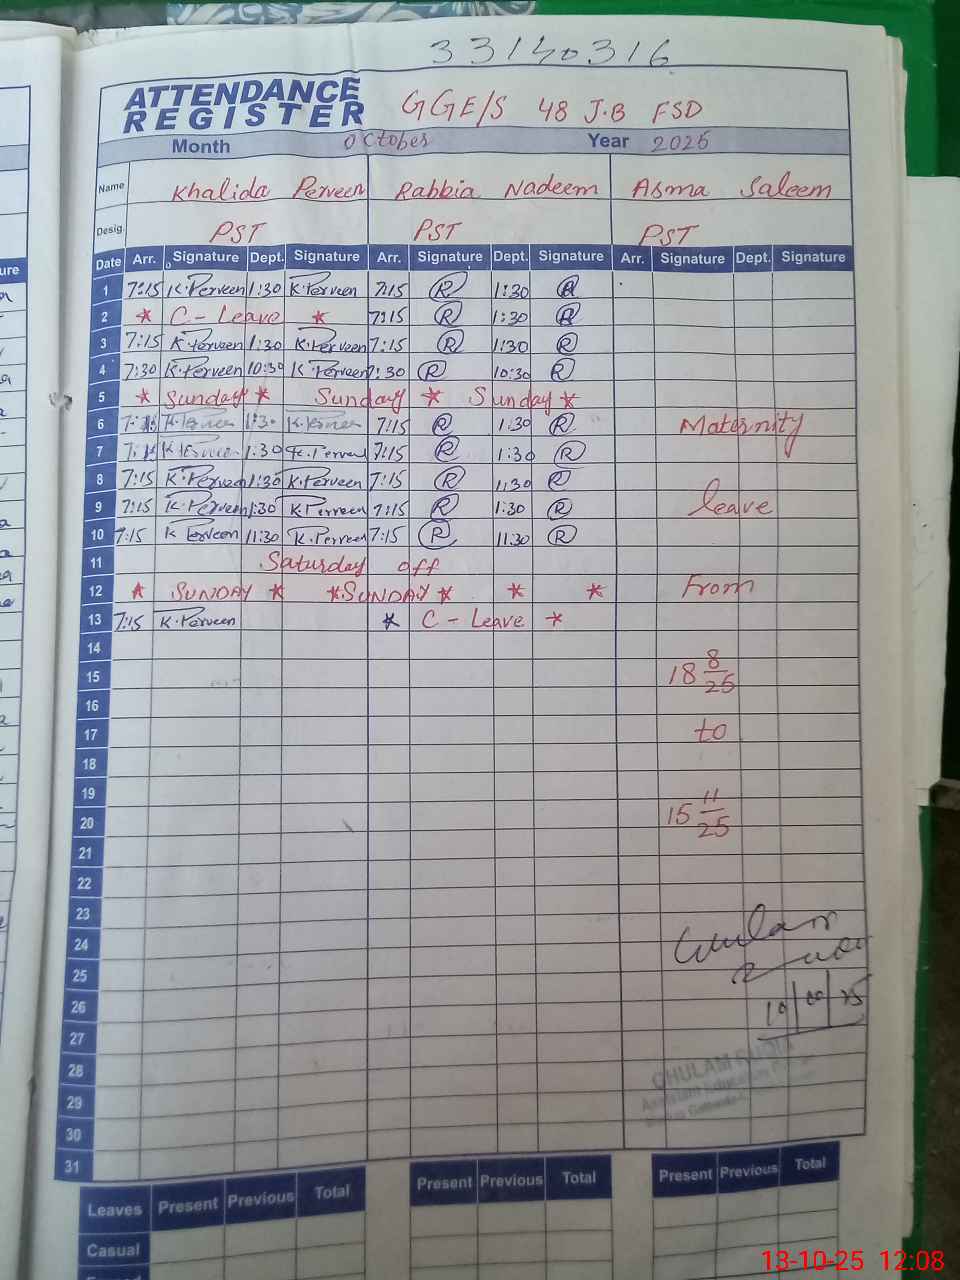 33140316
ATTENDANCE REGISTER GGE/S 48 J.B FSD
Month October Year 2025
Name Khalida Perveen Rabbia Nadeem Asma Saleem
Desig. PST PST PST
Date Arr. Signature Dept. Signature Arr. Signature Dept. Signature Arr. Signature Dept. Signature
1 7:15 K.Perveen 1:30 K.Perveen 7:15 R 1:30 R
2 * C - Leave * 7:15 R 1:30 R
3 7:15 K Perveen 1:30 K.Perveen 7:15 R 1:30 R
4 7:30 K.Perveen 10:30 K Perveen 7:30 R 10:30 R
5 * Sunday * Sunday * Sunday *
6 K.Perveen 1:30 K.Perveen 7:15 R 1:30 R Maternity
7 K Perveen 1:30 K.Perveen 7:15 R 1:30 R
8 7:15 K.Perveen 1:30 K.Perveen 7:15 R 1:30 R
9 7:15 K.Perveen 1:30 K.Perveen 7:15 R 1:30 R leave
10 7:15 K Perveen 11:30 K.Perveen 7:15 R 11:30 R
11 Saturday off
12 * SUNDAY * *SUNDAY * * * From
13 7:15 K.Perveen * C - Leave *
14
15 18 8/25
16
17 to
18
19
20 15 11/25
21
22
23
24 Ghulam
25
26
27
28 GHULAM
29 Assistant Education
30
31
Leaves Present Previous Total Present Previous Total Present Previous Total
Casual
13-10-25 12:08